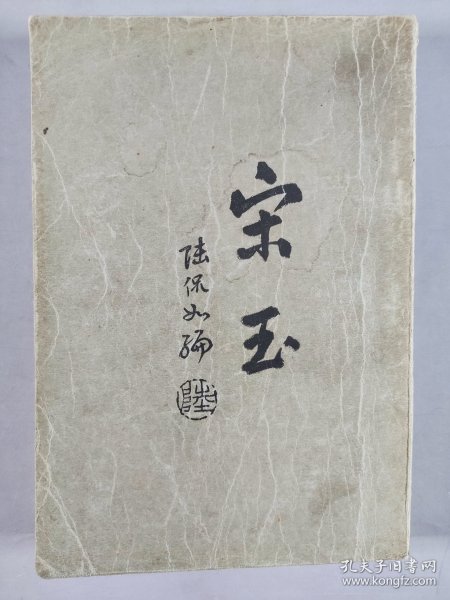 宋玉
陆侃如編
陸
孔夫子旧书网
www.kongfz.com